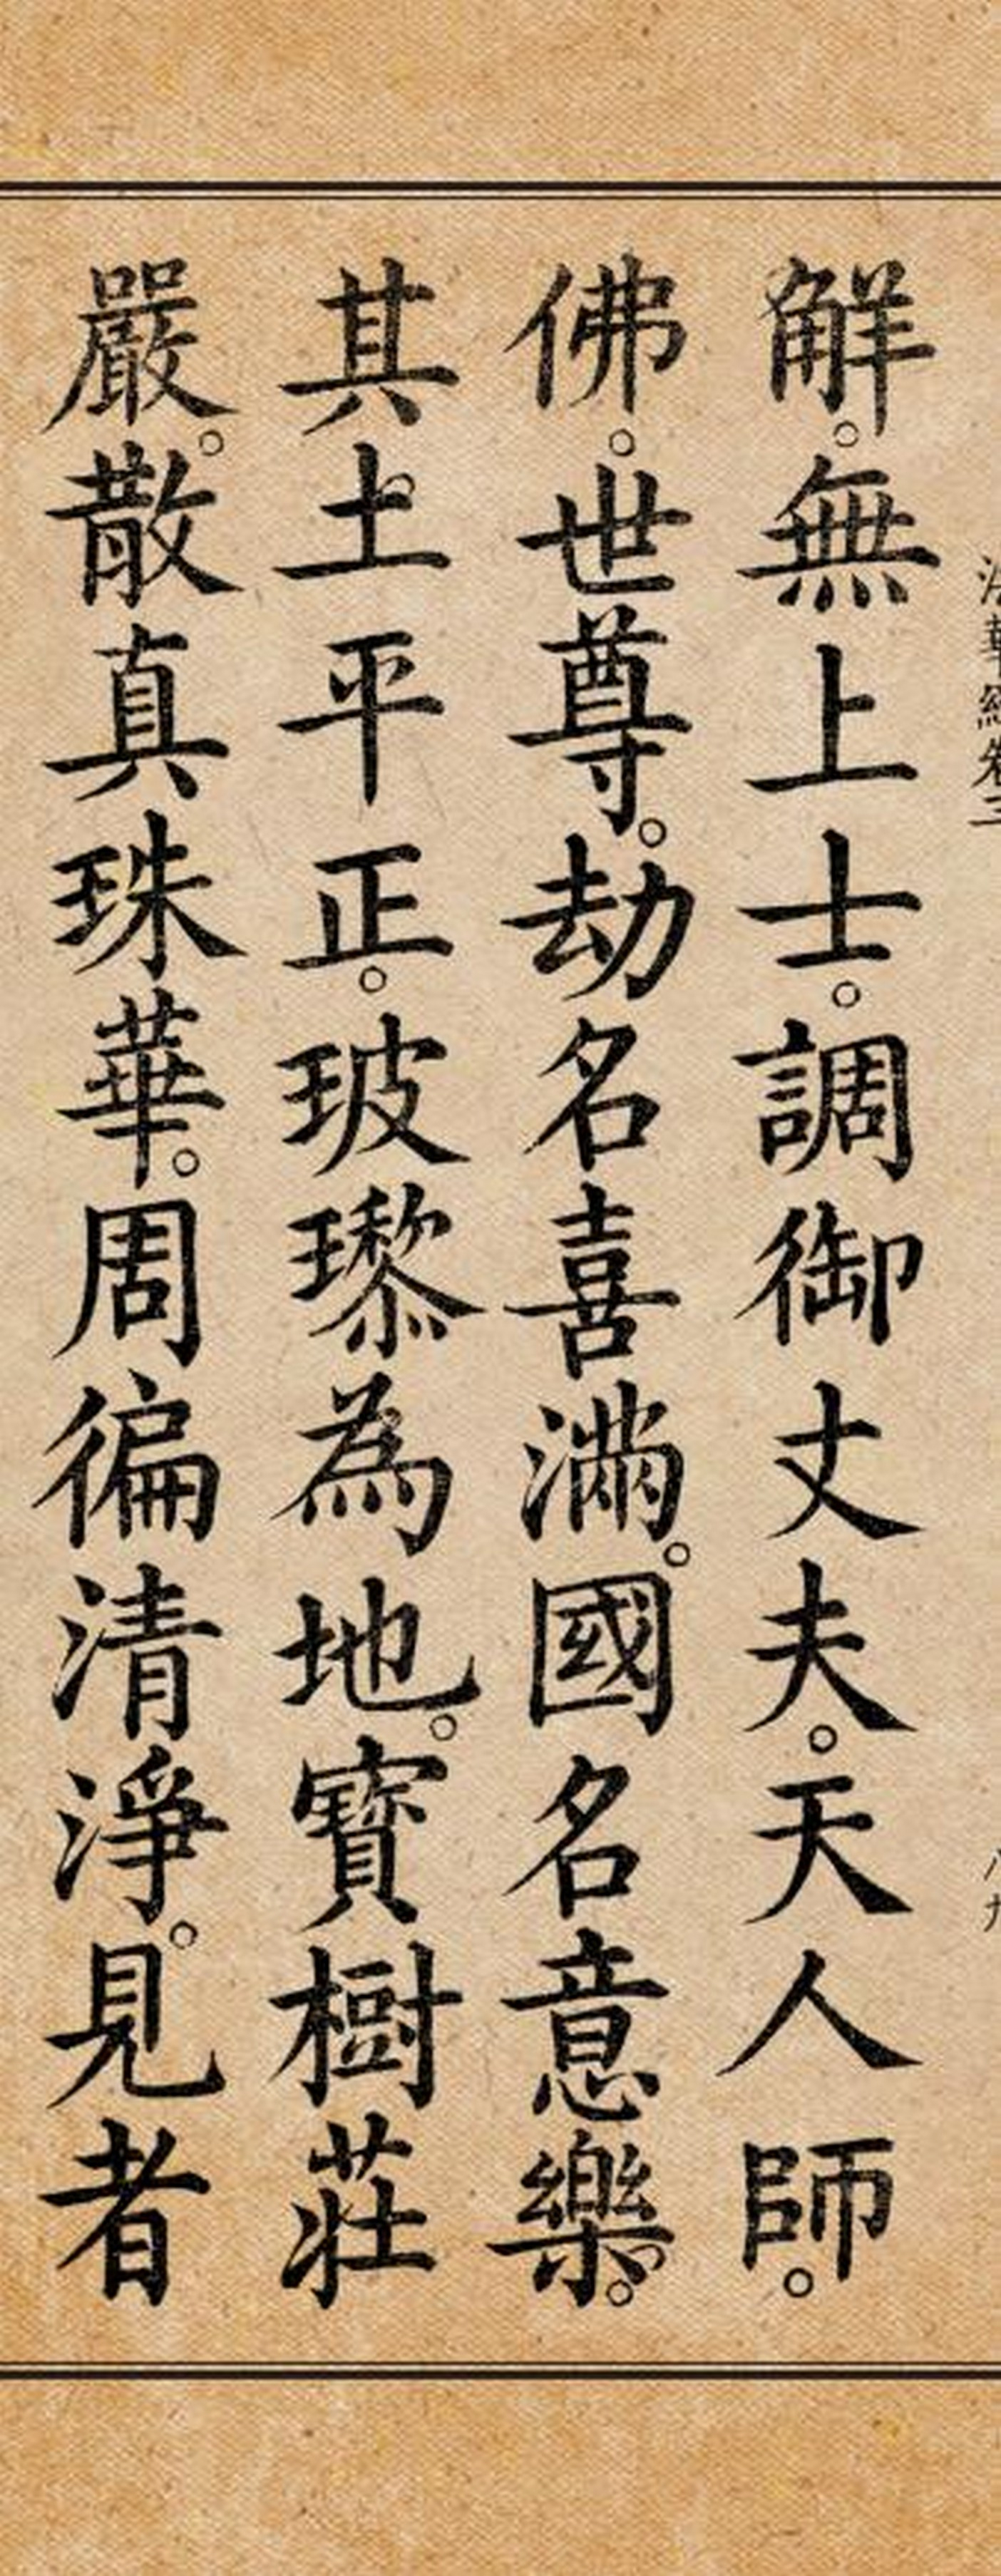 法華經卷三
解。無上士。調御丈夫。天人師。
佛。世尊。劫名喜滿。國名意樂。
其土平正。玻瓈為地。寶樹莊
嚴。散真珠華。周徧清淨。見者